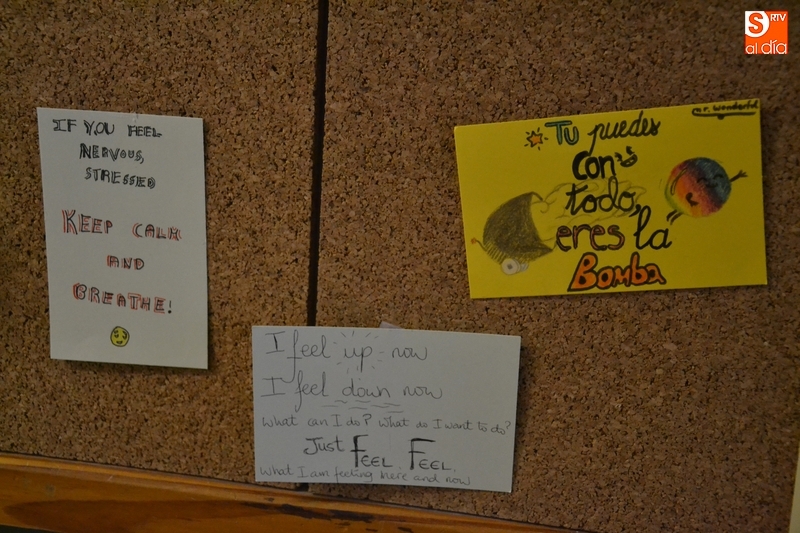 IF YOU FEEL
NERVOUS,
STRESSED
KEEP CALM
AND
BREATHE!
I feel up now
I feel down now
What can I do? What do I want to do?
Just FEEL. FEEL.
What I am feeling here and now
mr. wonderful
Tu puedes
con
todo,
eres la
Bomba
S RTV
al día